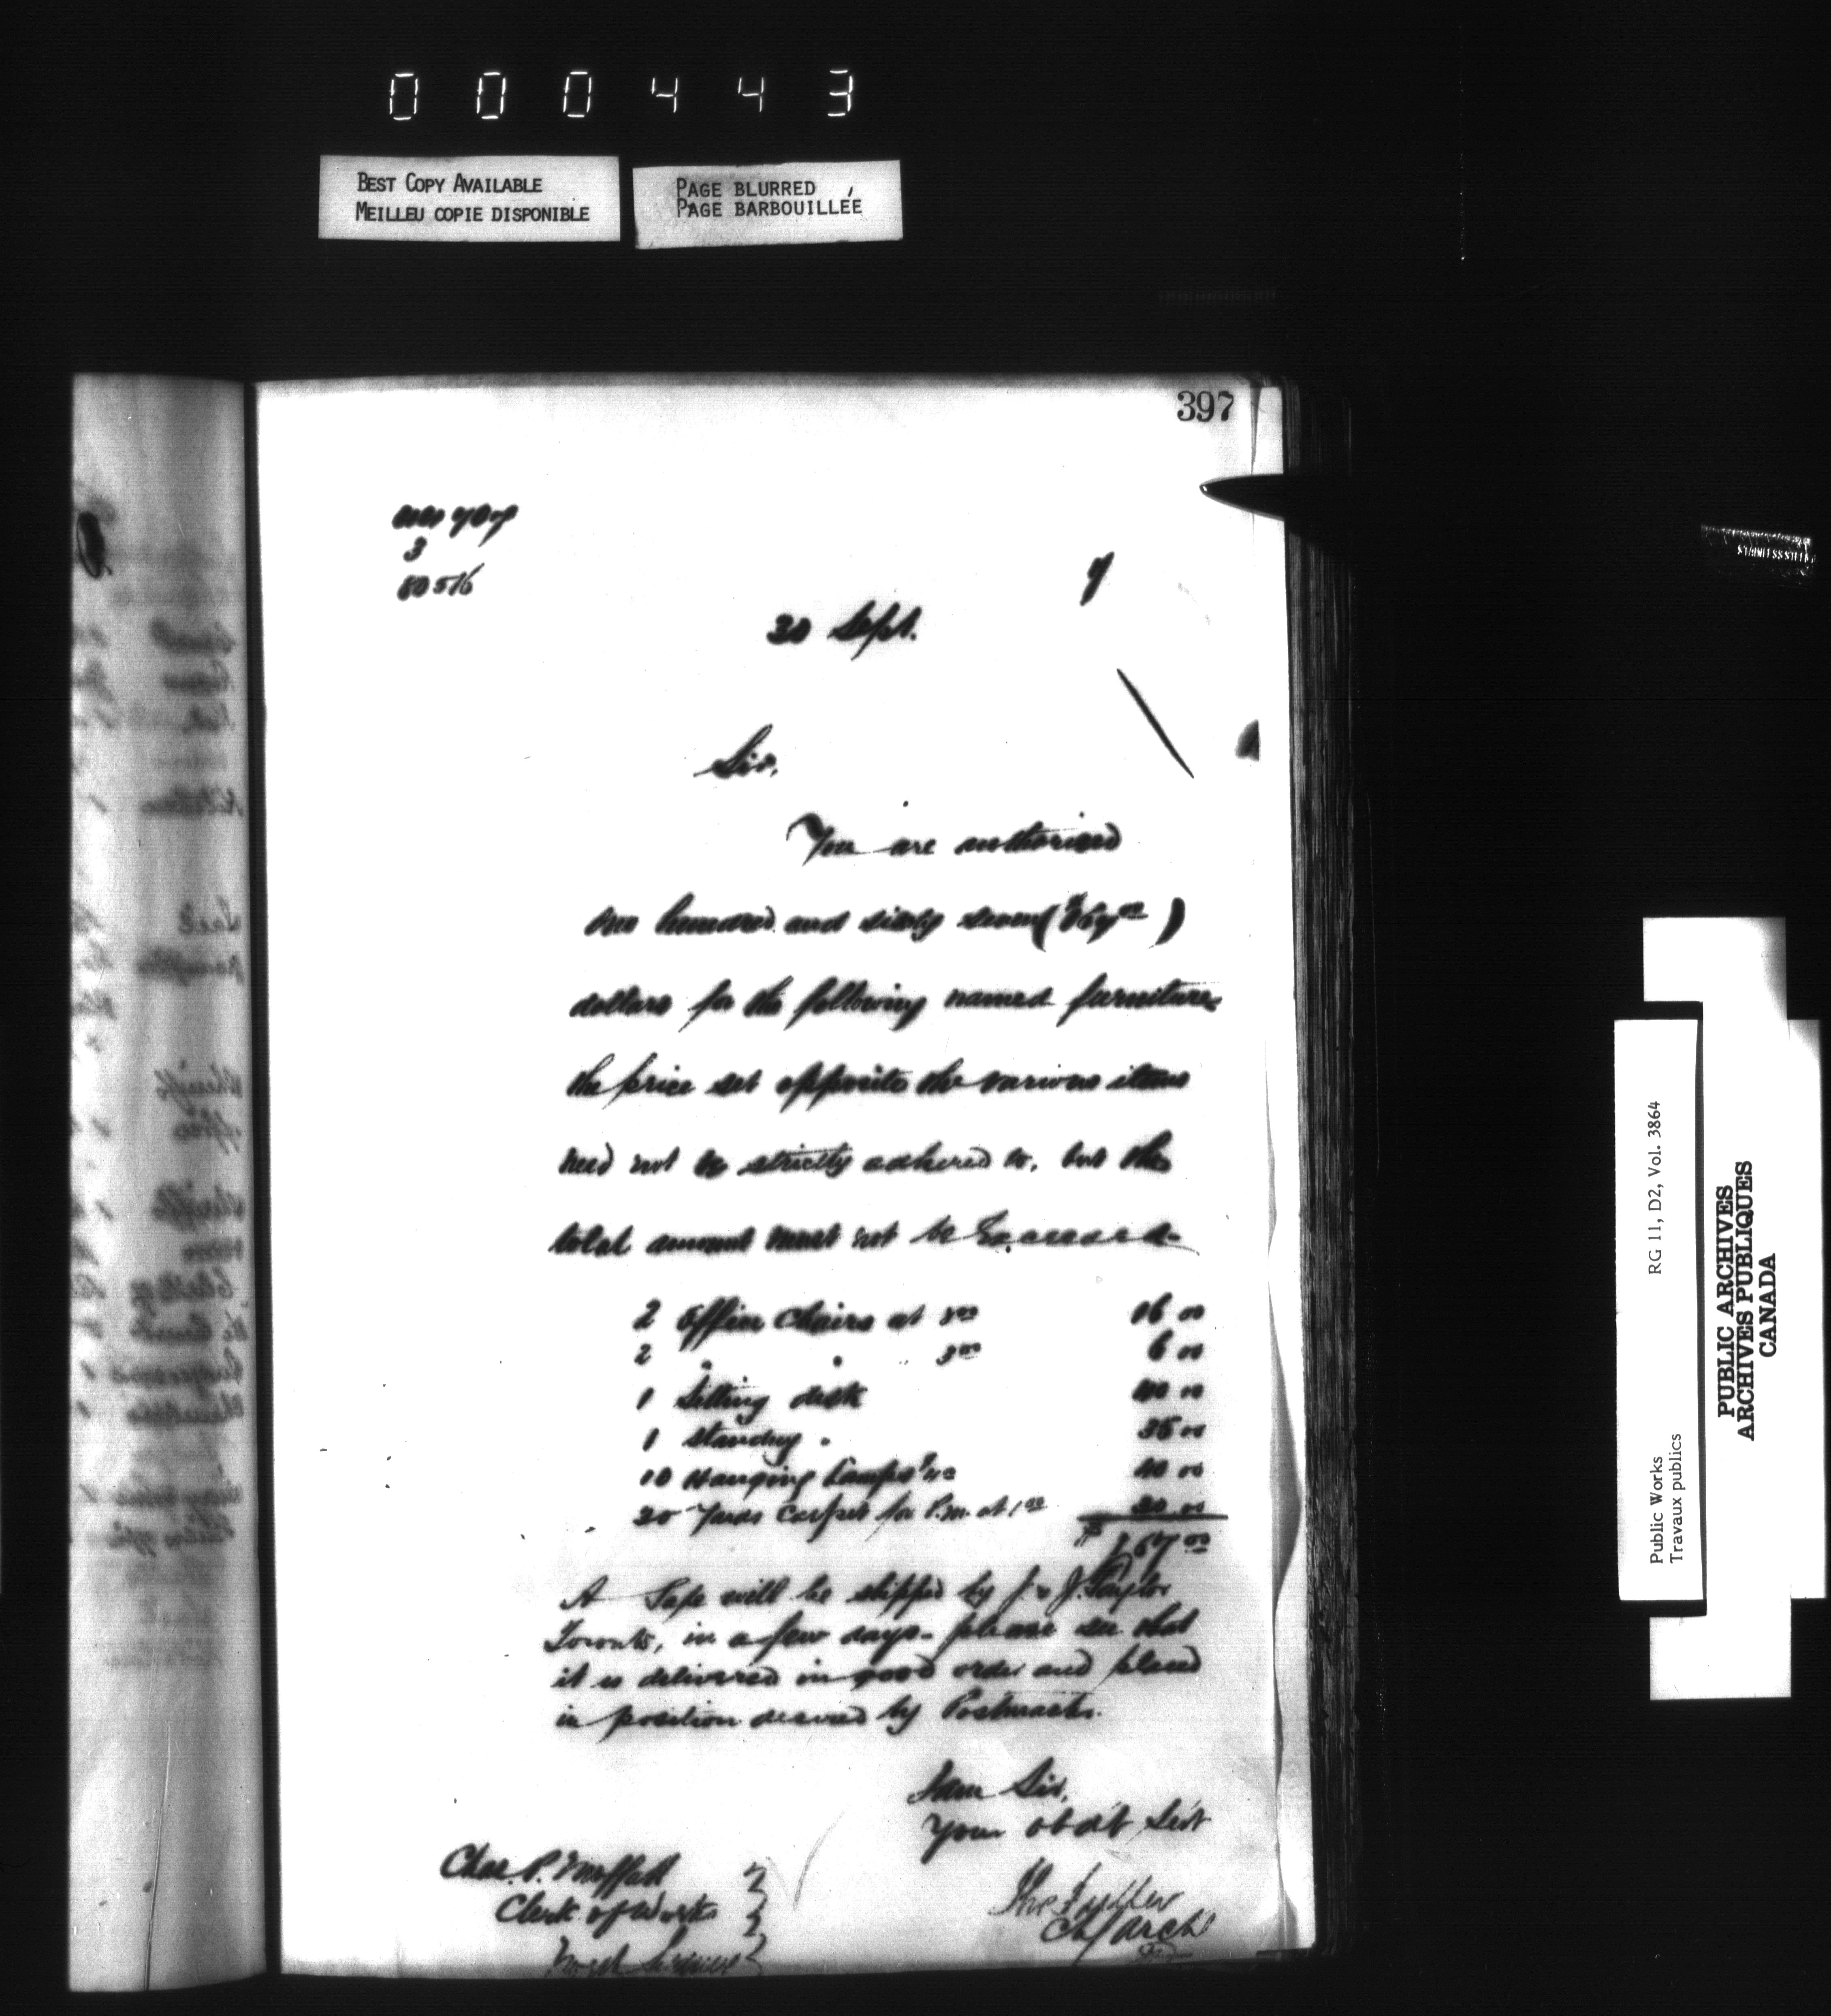 000443
BEST COPY AVAILABLE
MEILLEU COPIE DISPONIBLE
PAGE BLURRED
PAGE BARBOUILLÉE
397
3
80516
30 Sept.
7
Sir,
You are authorized
one hundred and sixty seven ($167.00)
dollars for the following named furniture
the price set opposite the various items
need not be strictly adhered to, but the
total amount must not be Exceeded.
2 Office chairs at 8.00 16 00
2 " " " 3.00 6 00
1 Sitting desk 40 00
1 Standing " 35 00
10 Hanging Lamps 40 00
30 Yards Carpet for P.M. at 1.00 30.00
$167.00
A Safe will be shipped by J. & J. Taylor
Toronto, in a few days. please see that
it is delivered in good order and placed
in position desired by Postmaster.
I am Sir,
Your obdt Servt
Chas. P. Moffatt
Clerk of Works
Thos Fuller
Ch Arch
RG 11, D2, Vol. 3864
Public Works
Travaux publics
PUBLIC ARCHIVES
ARCHIVES PUBLIQUES
CANADA